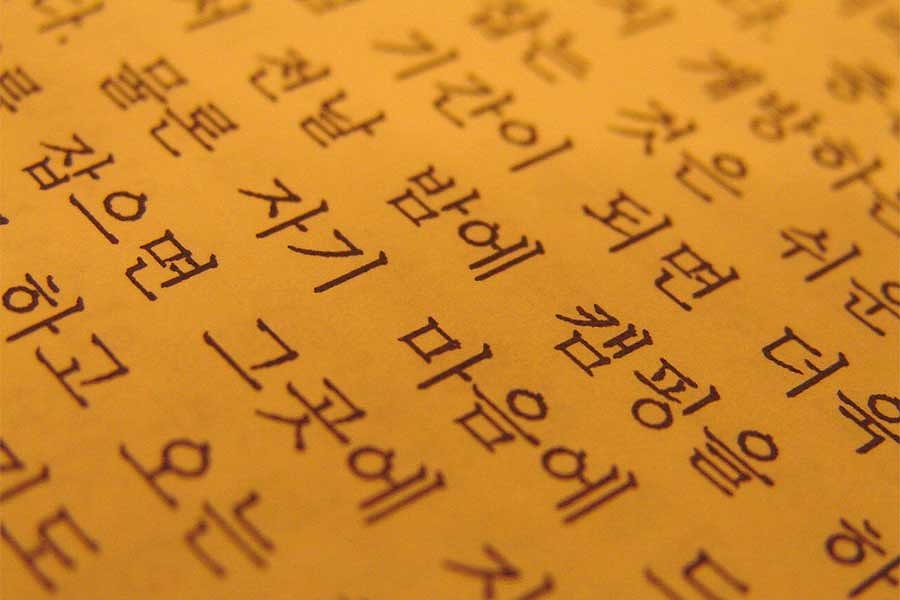 개방하는
잡는 것은 쉬운
기간이 되면 더욱
전날 밤에 캠핑을 하
물론 자기 마음에
잡으면 그곳에
하고 오는
도